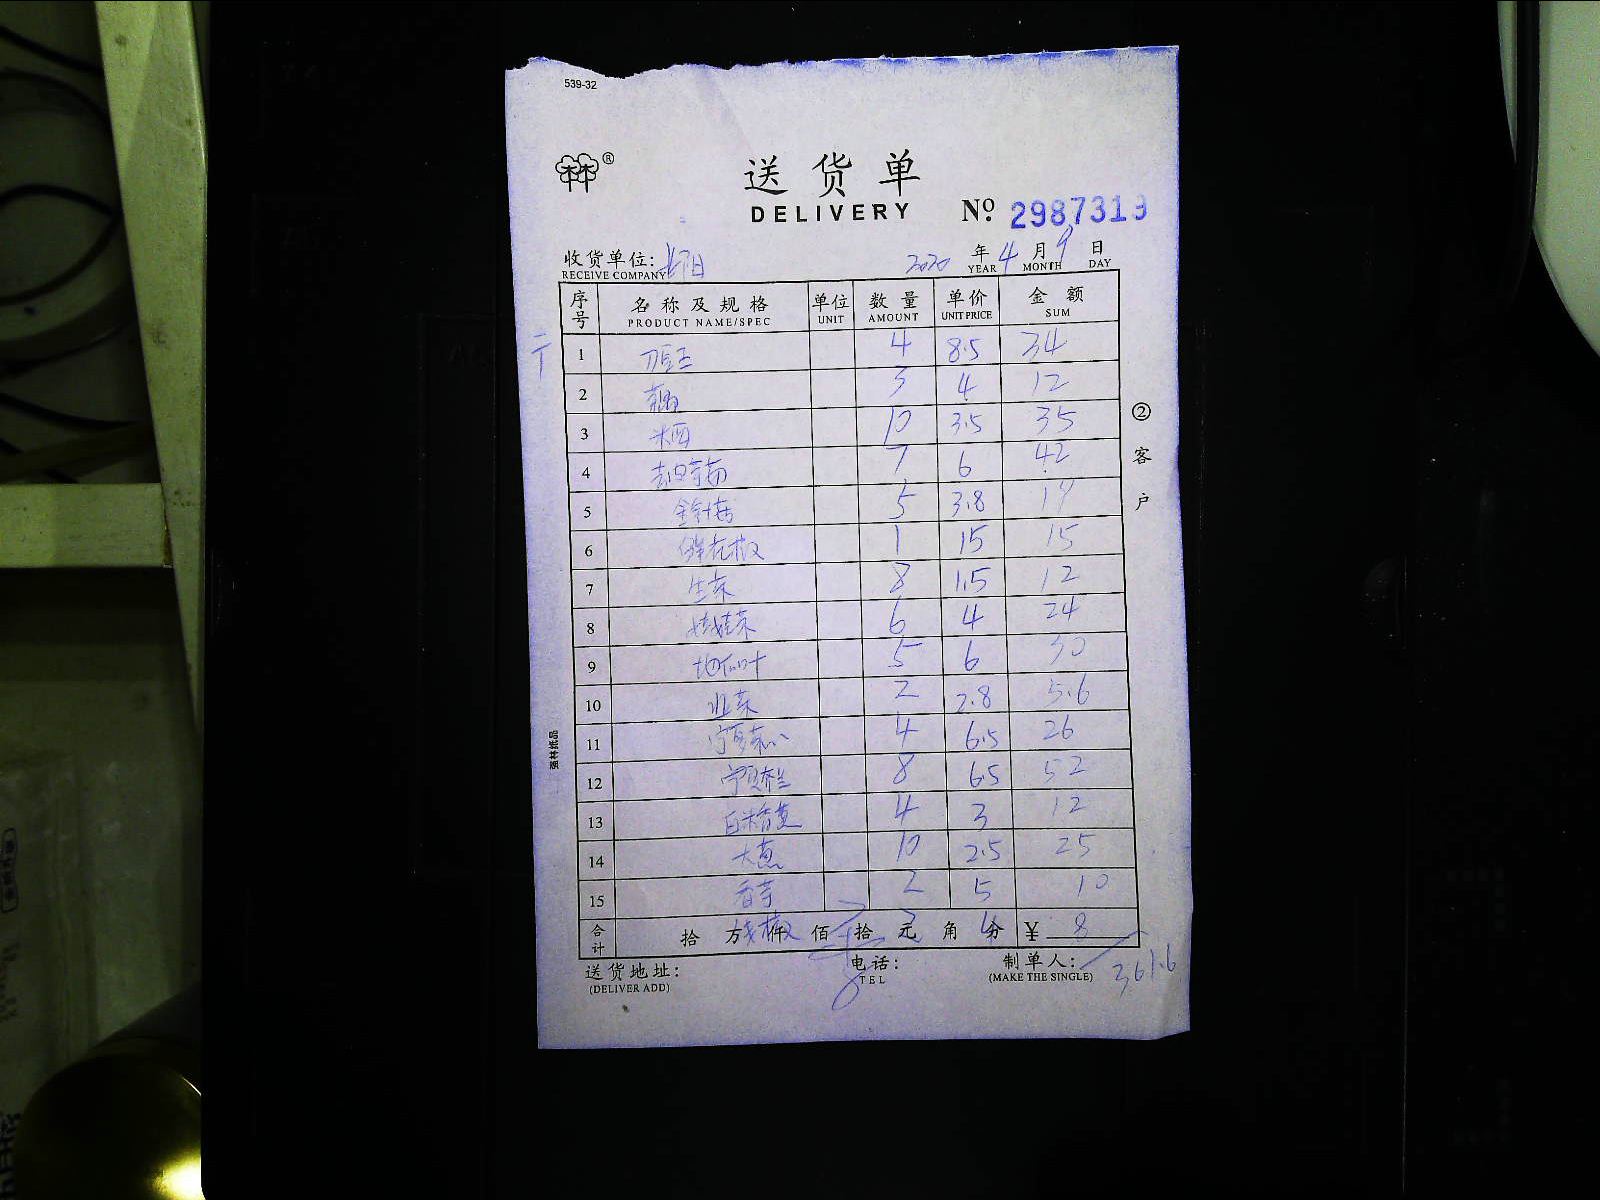 539-32
林®
送货单
DELIVERY
№ 2987319
收货单位:
RECEIVE COMPANY
2020 年 4 月 9 日
YEAR MONTH DAY
序号 名称及规格 单位 数量 单价 金额
PRODUCT NAME/SPEC UNIT AMOUNT UNIT PRICE SUM
1 刀豆 4 8.5 34
2 3 4 12
3 米酒 10 3.5 35
4 7 6 42
5 金针菇 5 3.8 19
6 鲜花椒 1 15 15
7 生菜 8 1.5 12
8 娃娃菜 6 4 24
9 5 6 30
10 韭菜 2 2.8 5.6
11 宁夏菜心 4 6.5 26
12 8 6.5 52
13 4 3 12
14 大葱 10 2.5 25
15 香芋 2 5 10
合计 拾 万 仟 佰 拾 元 角 分 ¥ 8
送货地址:
(DELIVER ADD)
电话:
TEL
制单人:
(MAKE THE SINGLE)
361.6
②客户
强林纸品